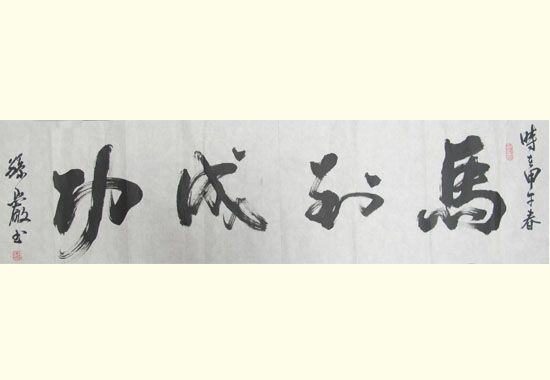 時在甲午春
馬到成功
孫嚴書